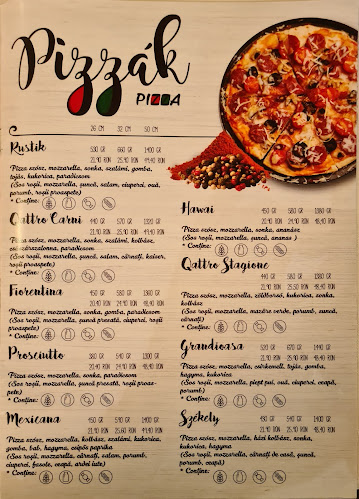 Pizzák
PIZZA
26 CM 32 CM 50 CM
Rustik 530 GR 660 GR 1400 GR
21,90 RON 25,90 RON 49,40 RON
Pizza szósz, mozzarella, sonka, szalámi, gomba,
tojás, kukorica, paradicsom
(Sos roșii, mozzarella, șuncă, salam, ciuperci, ouă,
porumb, roșii proaspete)
* Conține:
Qattro Carni 440 GR 570 GR 1320 GR
21,90 RON 25,90 RON 49,40 RON
Pizza szósz, mozzarella, sonka, szalámi, kolbász,
(Sos roșii, mozzarella, șuncă, salam, cârnați, kaiser,
roșii proaspete)
* Conține:
Fiorentina 450 GR 580 GR
20,40 RON 24,90 RON 48,40 RON
Pizza szósz, mozzarella, sonka, gomba, paradicsom
(Sos roșii, mozzarella, șuncă presată, ciuperci, roșii
proaspete)
* Conține:
Prosciutto 380 GR 540 GR 1200 GR
20,40 RON 24,90 RON 48,40 RON
Pizza szósz, mozzarella, sonka, paradicsom
(Sos roșii, mozzarella, șuncă presată, roșii proas-
pete)
* Conține:
Mexicana 450 GR 540 GR 1400 GR
21,90 RON 25,60 RON 49,40 RON
Pizza szósz, mozzarella, kolbász, szalámi, kukorica,
gomba, bab, hagyma, csípős paprika
(Sos roșii, mozzarella, cârnați, salam, porumb,
ciuperci, fasole, ceapă, ardei iute)
* Conține:
Hawai 450 GR 580 GR 1380 GR
21,90 RON 25,90 RON 49,40 RON
Pizza szósz, mozzarella, sonka, ananász
(Sos roșii, mozzarella, șuncă, ananas )
* Conține:
Qattro Stagione
440 GR 580 GR 1380 GR
21,90 RON 25,50 RON 48,40 RON
Pizza szósz, mozzarella, zöldborsó, kukorica, sonka,
kolbász
(Sos roșii, mozzarella, mazăre verde, porumb, șuncă,
cârnați)
* Conține:
Grandioasa 520 GR 670 GR 1440 GR
21,90 RON 25,90 RON 49,40 RON
Pizza szósz, mozzarella, csirkemell, tojás, gomba,
hagyma, kukorica
(Sos roșii, mozzarella, piept pui, ouă, ciuperci, ceapă,
porumb)
* Conține:
Székely 430 GR 540 GR 1400 GR
21,90 RON 25,90 RON 49,40 RON
Pizza szósz, mozzarella, házi kolbász, sonka,
kukorica, hagyma
(Sos roșii, mozzarella, cârnați de casă, șuncă,
porumb, ceapă)
* Conține: